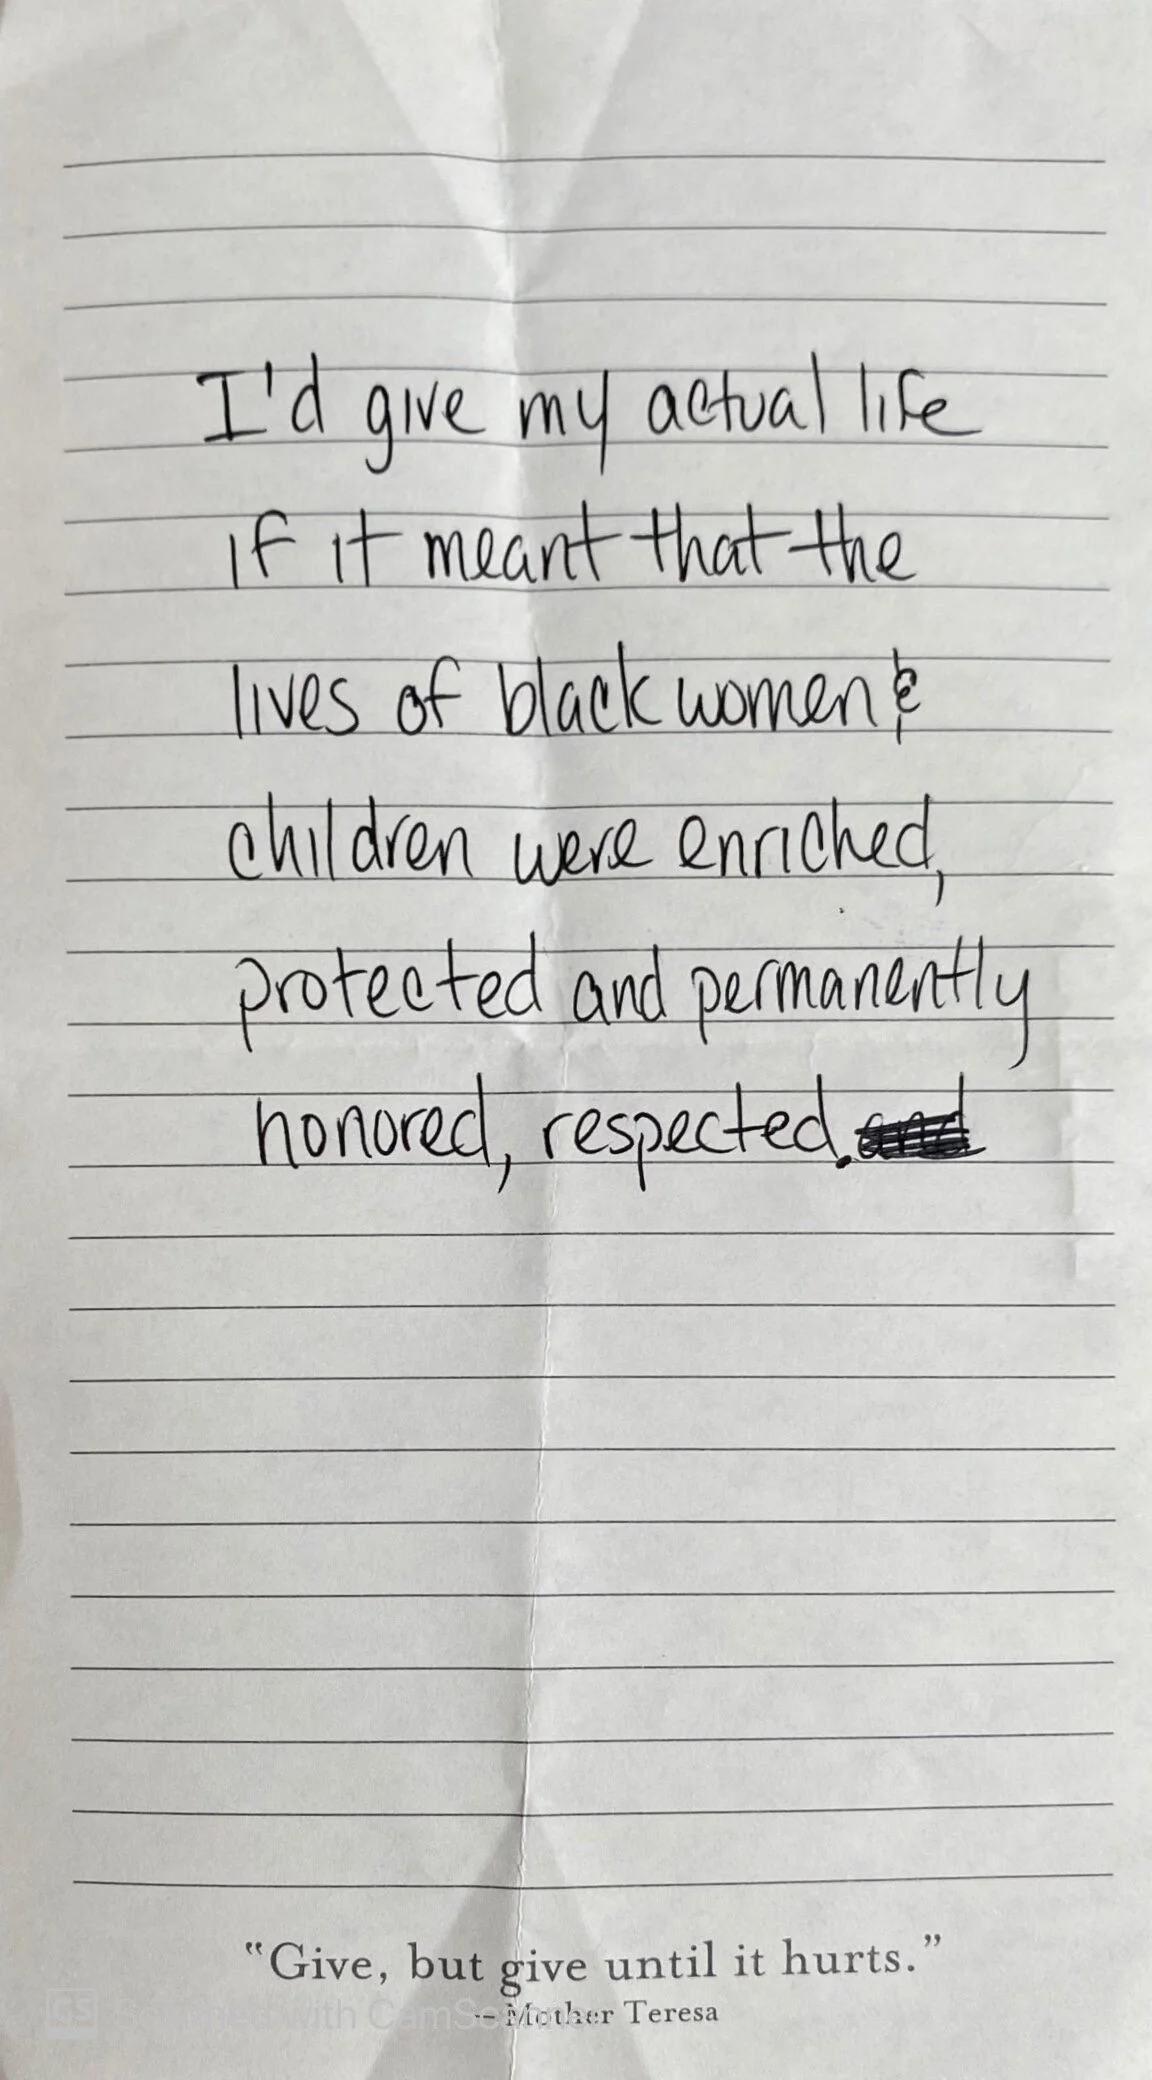 I'd give my actual life
if it meant that the
lives of black women &
children were enriched,
protected and permanently
honored, respected. and
"Give, but give until it hurts."
-- Mother Teresa
with CamScanner
CS